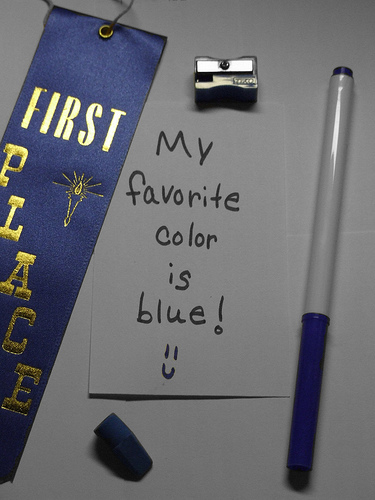 FIRST
PLACE
My
favorite
color
is
blue!